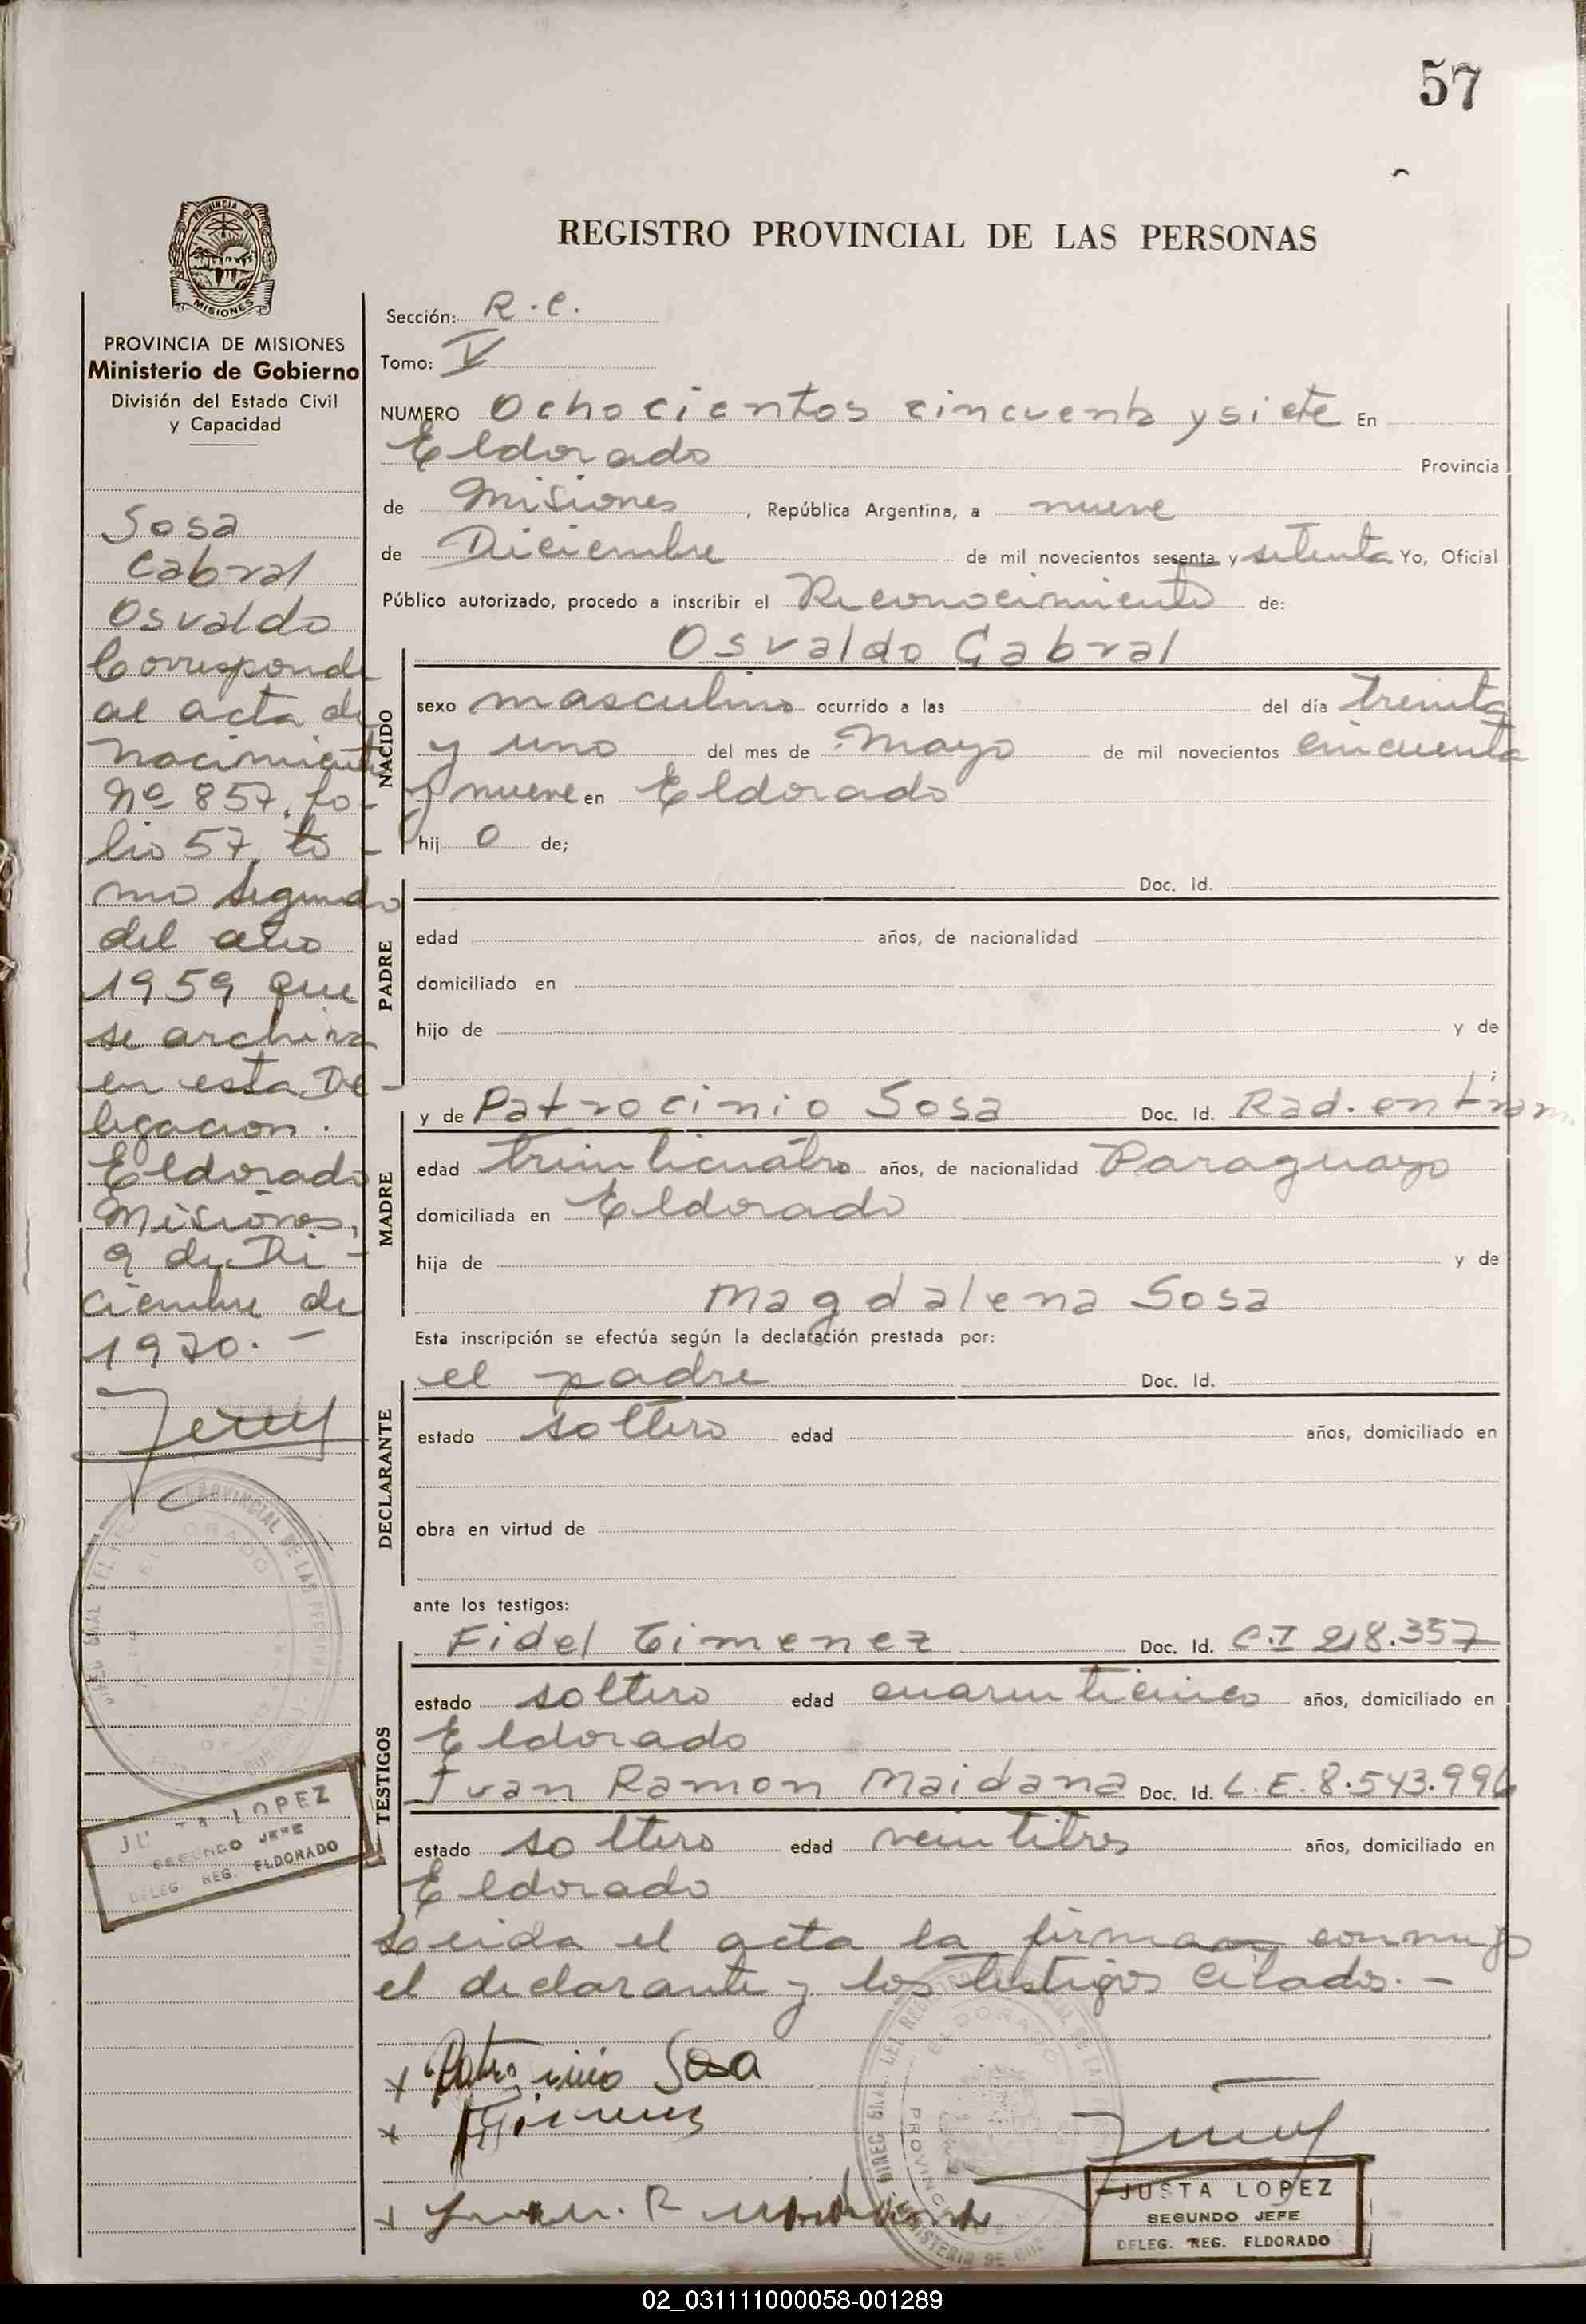 57
PROVINCIA DE
MISIONES
REGISTRO PROVINCIAL DE LAS PERSONAS
PROVINCIA DE MISIONES
Ministerio de Gobierno
División del Estado Civil
y Capacidad
Sosa
Cabral
Osvaldo
Corresponde
al acta de
nacimiento
Nº 857, fo-
lio 57, to-
mo segundo
del año
1959 que
se archiva
en esta De-
legacion.
Eldorado
Misiones,
9 de Di-
ciembre de
1970.-
PROVINCIAL DE LAS
ELDORADO
JUSTA LOPEZ
SEGUNDO JEFE
DELEG. REG. ELDORADO
Sección: R.C.
Tomo: V
NUMERO Ochocientos cincuenta y siete En
Eldorado Provincia
de Misiones, República Argentina, a nueve
de Diciembre de mil novecientos sesenta y setenta Yo, Oficial
Público autorizado, procedo a inscribir el Reconocimiento de:
Osvaldo Cabral
NACIDO
sexo masculino ocurrido a las del día treinta
y uno del mes de Mayo de mil novecientos cincuenta
y nueve en Eldorado
hij o de;
PADRE
Doc. Id.
edad años, de nacionalidad
domiciliado en
hijo de y de
;
MADRE
y de Patrocinio Sosa Doc. Id. Rad. en tram.
edad treinticuatro años, de nacionalidad Paraguayo
domiciliada en Eldorado
hija de y de
Magdalena Sosa
Esta inscripción se efectúa según la declaración prestada por:
DECLARANTE
el padre Doc. Id.
estado soltero edad años, domiciliado en
obra en virtud de
ante los testigos:
TESTIGOS
Fidel Gimenez Doc. Id. C.I 218.357
estado soltero edad cuarenticinco años, domiciliado en
Eldorado
Juan Ramon Maidana Doc. Id. L.E. 8.543.996
estado soltero edad veintitres años, domiciliado en
Eldorado
Leida el acta la firman conmigo
el declarante y los testigos citados.-
x Patrocinio Sosa
x
x Juan R
ELDORADO
JUSTA LOPEZ
SEGUNDO JEFE
DELEG. REG. ELDORADO
02_031111000058-001289